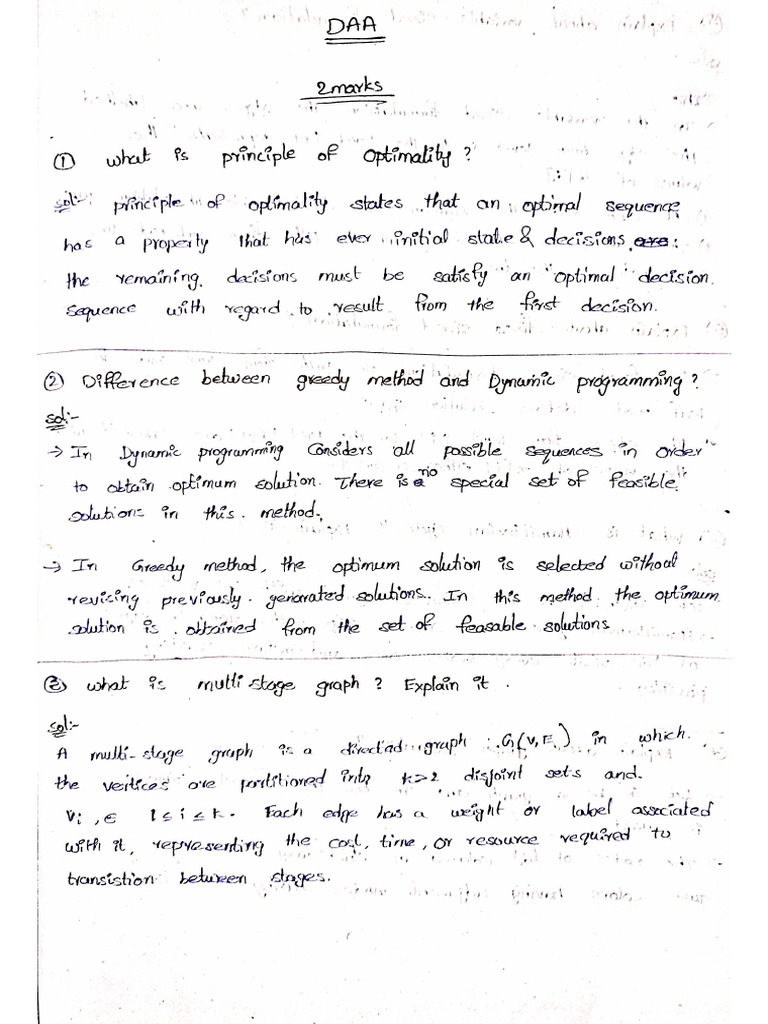 DAA
2marks
① what is principle of optimality?
sol:- principle of optimality states that an optimal sequence
has a property that has ever initial state & decisions are:
the remaining decisions must be satisfy an "optimal" decision
sequence with regard to result from the first decision.
② Difference between greedy method and Dynamic programming?
sol:-
→ In Dynamic programming Considers all possible sequences in order
to obtain optimum solution. There is no special set of feasible
solutions in this method.
→ In Greedy method, the optimum solution is selected without
revising previously generated solutions. In this method the optimum
solution is obtained from the set of feasable solutions
③ what is multi stage graph? Explain it.
sol:-
A multi-stage graph is a directed graph G(V,E) in which
the vertices are partitioned into k>2 disjoint sets and
Vi, ∈ 1≤i≤k. Each edge has a weight or label associated
with it, representing the cost, time, or resource required to
transistion between stages.